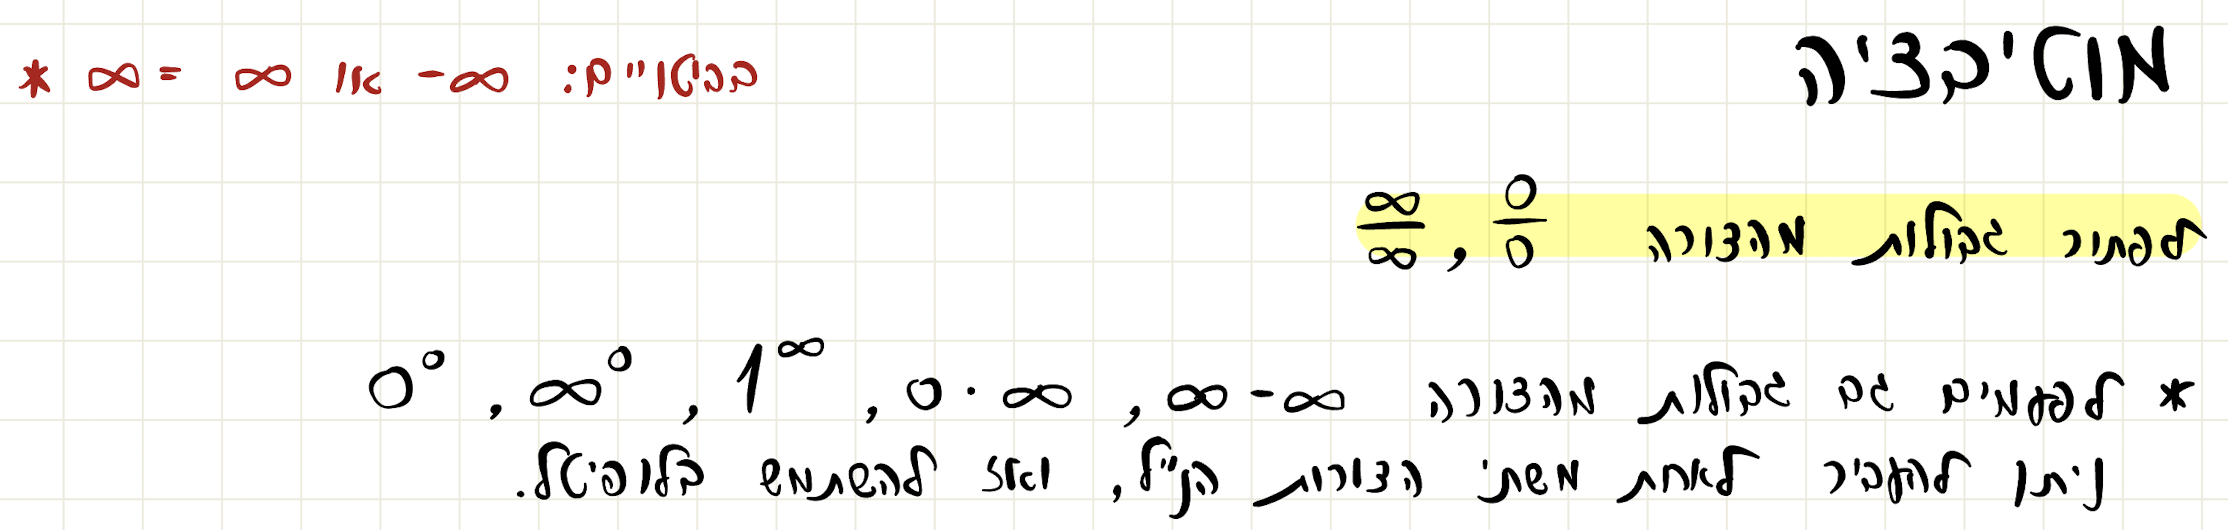 מוטיבציה
* ∞ = ∞ או -∞ בביטויים:
לפתור גבולות מהצורה 0/0 , ∞/∞
* לפעמים גם גבולות מהצורה ∞-∞ , 0·∞ , 1^∞ , ∞^0 , 0^0
ניתן להעביר לאחת משתי הצורות הנ"ל, ואז להשתמש בלופיטל.